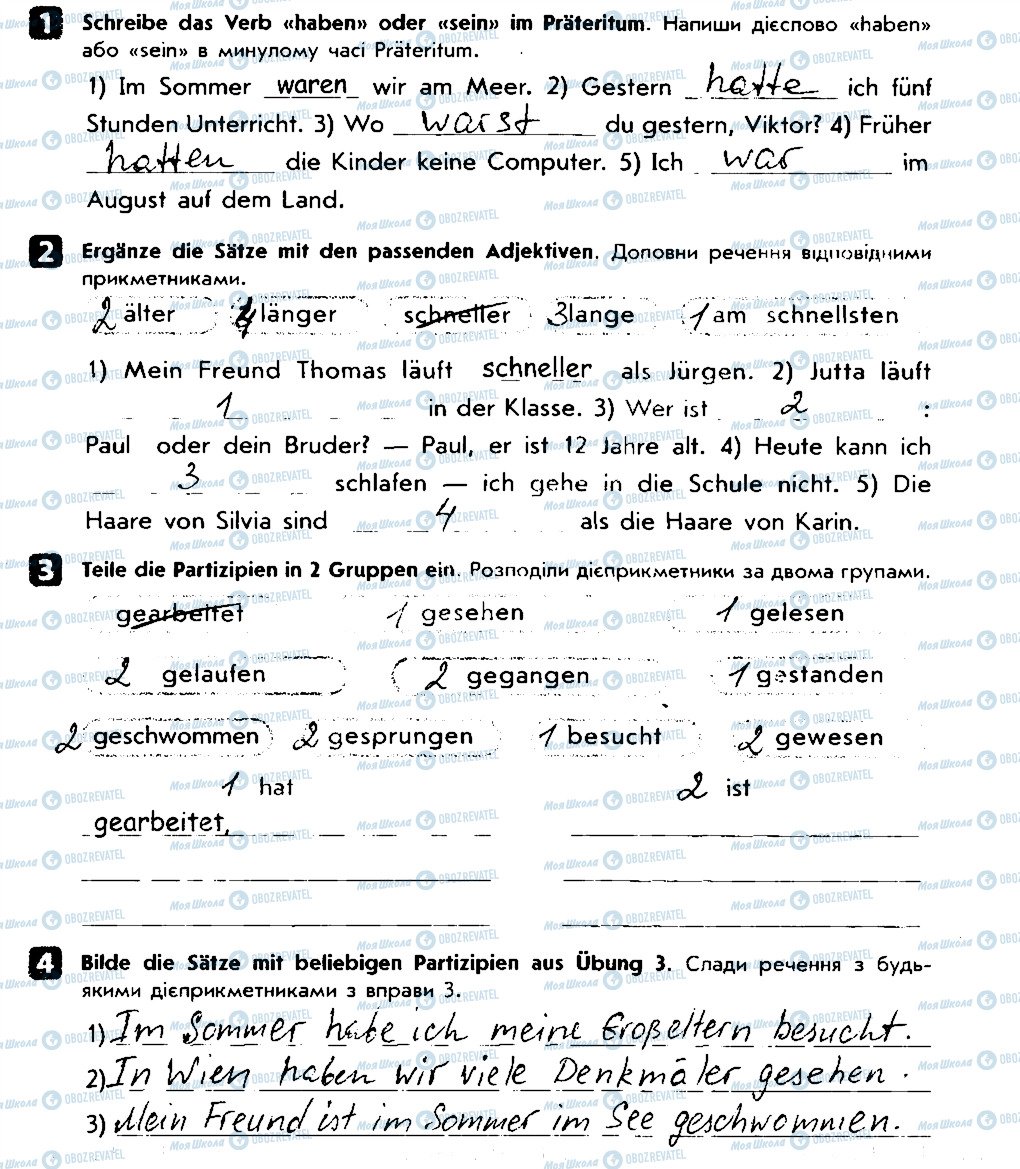 1 Schreibe das Verb «haben» oder «sein» im Präteritum. Напиши дієслово «haben»
або «sein» в минулому часі Präteritum.
1) Im Sommer waren wir am Meer. 2) Gestern hatte ich fünf
Stunden Unterricht. 3) Wo warst du gestern, Viktor? 4) Früher
hatten die Kinder keine Computer. 5) Ich war im
August auf dem Land.
2 Ergänze die Sätze mit den passenden Adjektiven. Доповни речення відповідними
прикметниками.
2 älter 4 länger schneller 3 lange 1 am schnellsten
1) Mein Freund Thomas läuft schneller als Jürgen. 2) Jutta läuft
1 in der Klasse. 3) Wer ist 2 :
Paul oder dein Bruder? — Paul, er ist 12 Jahre alt. 4) Heute kann ich
3 schlafen — ich gehe in die Schule nicht. 5) Die
Haare von Silvia sind 4 als die Haare von Karin.
3 Teile die Partizipien in 2 Gruppen ein. Розподіли дієприкметники за двома групами.
gearbeitet 1 gesehen 1 gelesen
2 gelaufen 2 gegangen 1 gestanden
2 geschwommen 2 gesprungen 1 besucht 2 gewesen
1 hat 2 ist
gearbeitet,
4 Bilde die Sätze mit beliebigen Partizipien aus Übung 3. Слади речення з будь-
якими дієприкметниками з вправи 3.
1) Im Sommer habe ich meine Großeltern besucht.
2) In Wien haben wir viele Denkmäler gesehen.
3) Mein Freund ist im Sommer im See geschwommen.
Моя Школа OBOZREVATEL